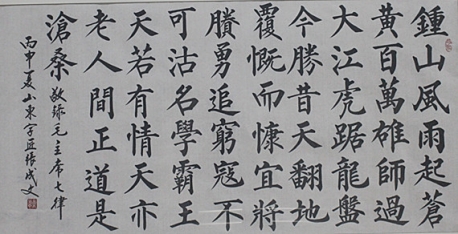 鍾山風雨起蒼
黃百萬雄師過
大江虎踞龍盤
今勝昔天翻地
覆慨而慷宜將
賸勇追窮寇不
可沽名學霸王
天若有情天亦
老人間正道是
滄桑 敬錄毛主席七律
丙申夏山東